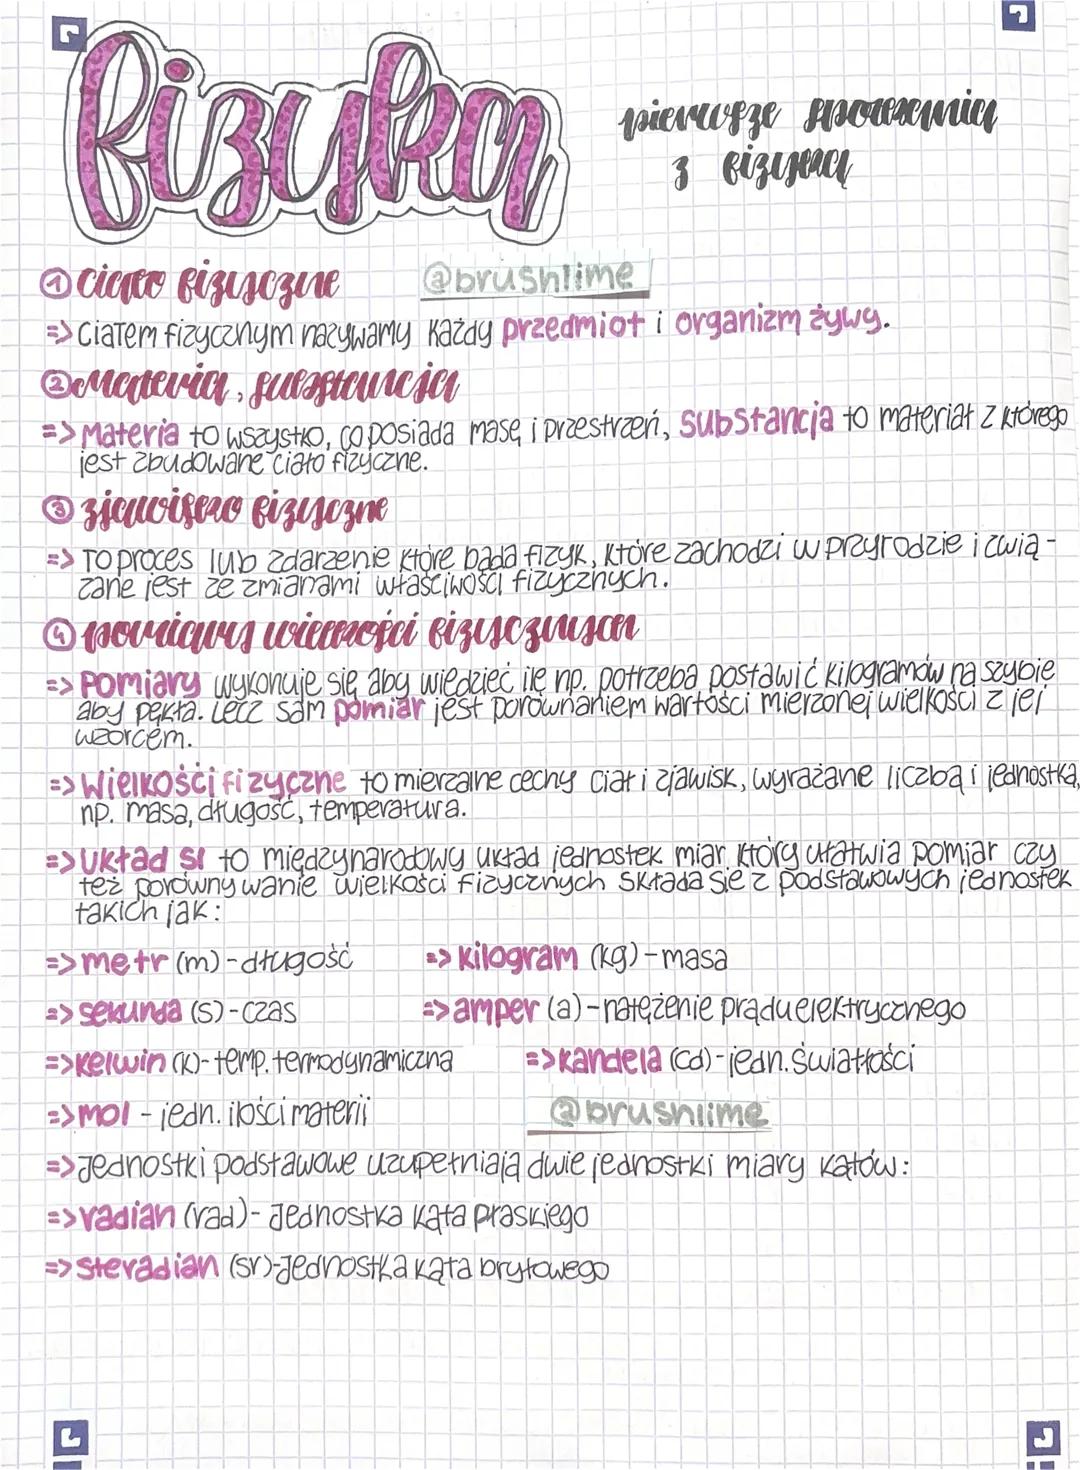 fizyka
pierwsze spotkania
z fizyką
① ciało fizyczne @brushlime
=> ciałem fizycznym nazywamy każdy przedmiot i organizm żywy.
② Materia, substancja
=> Materia to wszystko, co posiada masę i przestrzeń, substancja to materiał z którego
jest zbudowane ciało fizyczne.
③ zjawisko fizyczne
=> To proces lub zdarzenie które bada fizyk, które zachodzi w przyrodzie i zwią-
zane jest ze zmianami właściwości fizycznych.
④ pomiary wielkości fizycznych
=> Pomiary wykonuje się aby wiedzieć ile np. potrzeba postawić kilogramów na szybie
aby pękła. Lecz sam pomiar jest porównaniem wartości mierzonej wielkości z jej
wzorcem.
=> Wielkości fizyczne to mierzalne cechy ciał i zjawisk, wyrażane liczbą i jednostką,
np. masa, długość, temperatura.
=> Układ SI to międzynarodowy układ jednostek miar który ułatwia pomiar czy
też porównywanie wielkości fizycznych składa się z podstawowych jednostek
takich jak:
=> metr (m) - długość => kilogram (kg) - masa
=> sekunda (s) - czas => amper (a) - natężenie prądu elektrycznego
=> kelwin (K) - temp. termodynamiczna => kandela (cd) - jedn. światłości
=> mol - jedn. ilości materii @brushlime
=> Jednostki podstawowe uzupełniają dwie jednostki miary kątów:
=> radian (rad) - Jednostka kąta płaskiego
=> steradian (sr) - Jednostka kąta bryłowego